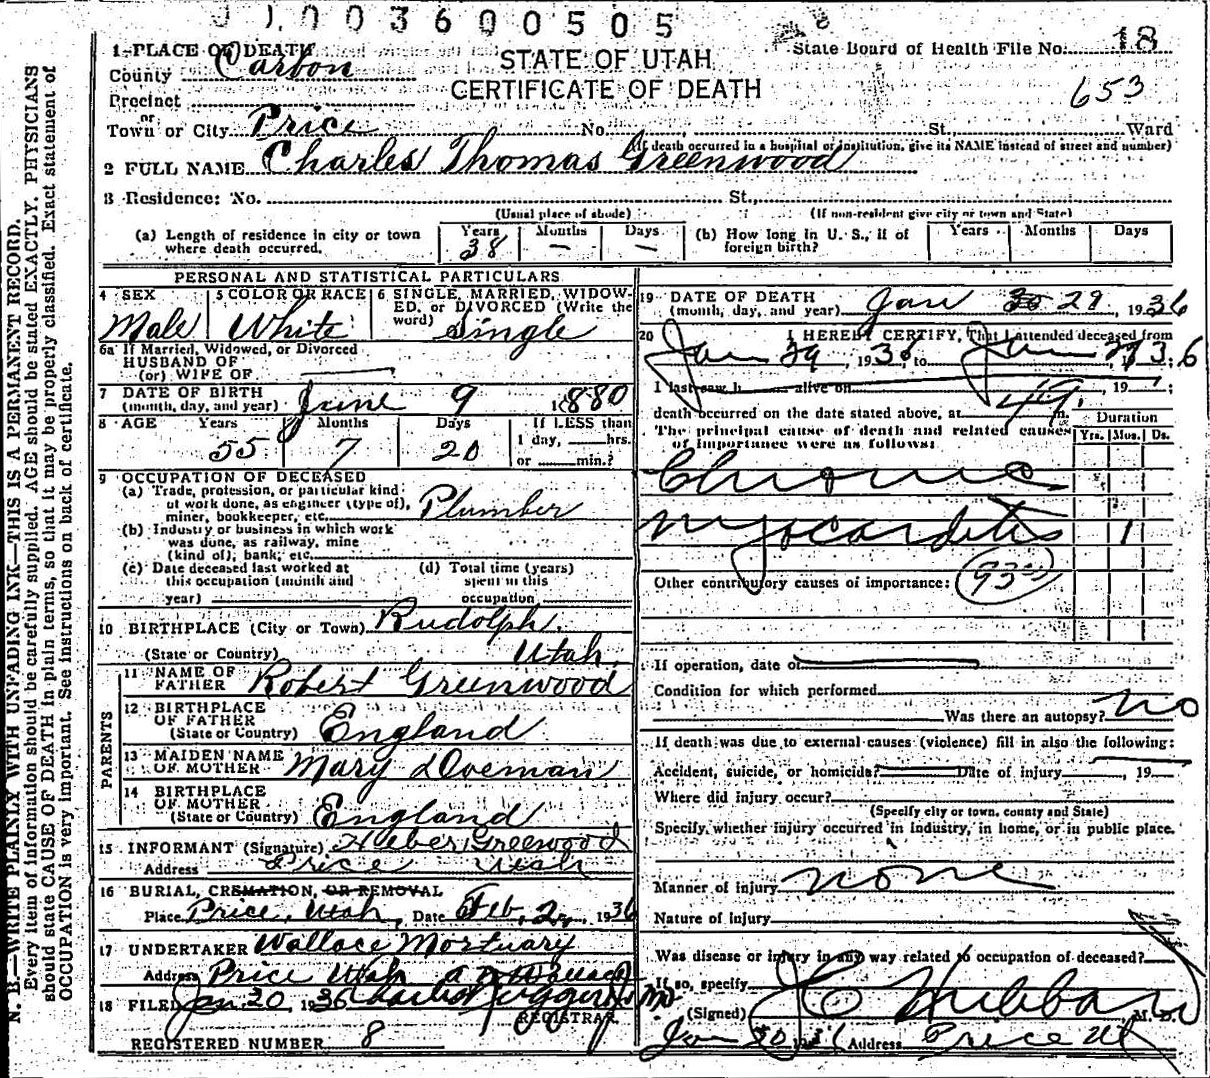 003600505
1 PLACE OF DEATH
County Carbon
STATE OF UTAH
CERTIFICATE OF DEATH
State Board of Health File No. 18
653
Precinct
or
Town or City Price No. St., Ward
(If death occurred in a hospital or institution, give its NAME instead of street and number)
2 FULL NAME Charles Thomas Greenwood
3 Residence: No. St.,
(Usual place of abode) (If non-resident give city or town and State)
(a) Length of residence in city or town where death occurred. Years 38 Months — Days — (b) How long in U. S., if of foreign birth? Years Months Days
PERSONAL AND STATISTICAL PARTICULARS
4 SEX Male
5 COLOR OR RACE White
6 SINGLE, MARRIED, WIDOWED, or DIVORCED (Write the word) Single
6a If Married, Widowed, or Divorced
HUSBAND OF
(or) WIFE OF
7 DATE OF BIRTH
(month, day, and year) June 9 1880
8 AGE Years 55 Months 7 Days 20 If LESS than
1 day, hrs.
or min.?
9 OCCUPATION OF DECEASED
(a) Trade, profession, or particular kind
of work done, as engineer (type of),
miner, bookkeeper, etc. Plumber
(b) Industry or business in which work
was done, as railway, mine
(kind of), bank, etc.
(c) Date deceased last worked at
this occupation (month and
year)
(d) Total time (years)
spent in this
occupation
10 BIRTHPLACE (City or Town) Rudolph
(State or Country) Utah
PARENTS
11 NAME OF
FATHER Robert Greenwood
12 BIRTHPLACE
OF FATHER
(State or Country) England
13 MAIDEN NAME
OF MOTHER Mary Doeman
14 BIRTHPLACE
OF MOTHER
(State or Country) England
15 INFORMANT (Signature) Heber Greewood
Address Price Utah
16 BURIAL, CREMATION, OR REMOVAL
Place Price, Utah, Date Feb, 2, 1936
17 UNDERTAKER Wallace Mortuary
Address Price Utah
18 FILED Jan 30 1936
REGISTRAR
REGISTERED NUMBER 8
19 DATE OF DEATH
(month, day, and year) Jan 30 29, 1936
20 I HEREBY CERTIFY, That I attended deceased from
Jan 29, 1936, to Jan 29 36;
I last saw h alive on, 19;
death occurred on the date stated above, at m.
The principal cause of death and related causes
of importance were as follows: Duration
Yrs. Mos. Ds.
Chronic
myocarditis 1
Other contributory causes of importance:
If operation, date of
Condition for which performed
Was there an autopsy? no
If death was due to external causes (violence) fill in also the following:
Accident, suicide, or homicide? Date of injury, 19
Where did injury occur?
(Specify city or town, county and State)
Specify whether injury occurred in industry, in home, or in public place.
Manner of injury none
Nature of injury
Was disease or injury in any way related to occupation of deceased?
If so, specify
(Signed) J C Hubbard M. D.
Jan 30 1936 Address Price Ut
N. B.—WRITE PLAINLY WITH UNFADING INK—THIS IS A PERMANENT RECORD.
Every item of information should be carefully supplied. AGE should be stated EXACTLY. PHYSICIANS
should state CAUSE OF DEATH in plain terms, so that it may be properly classified. Exact statement of
OCCUPATION is very important. See instructions on back of certificate.